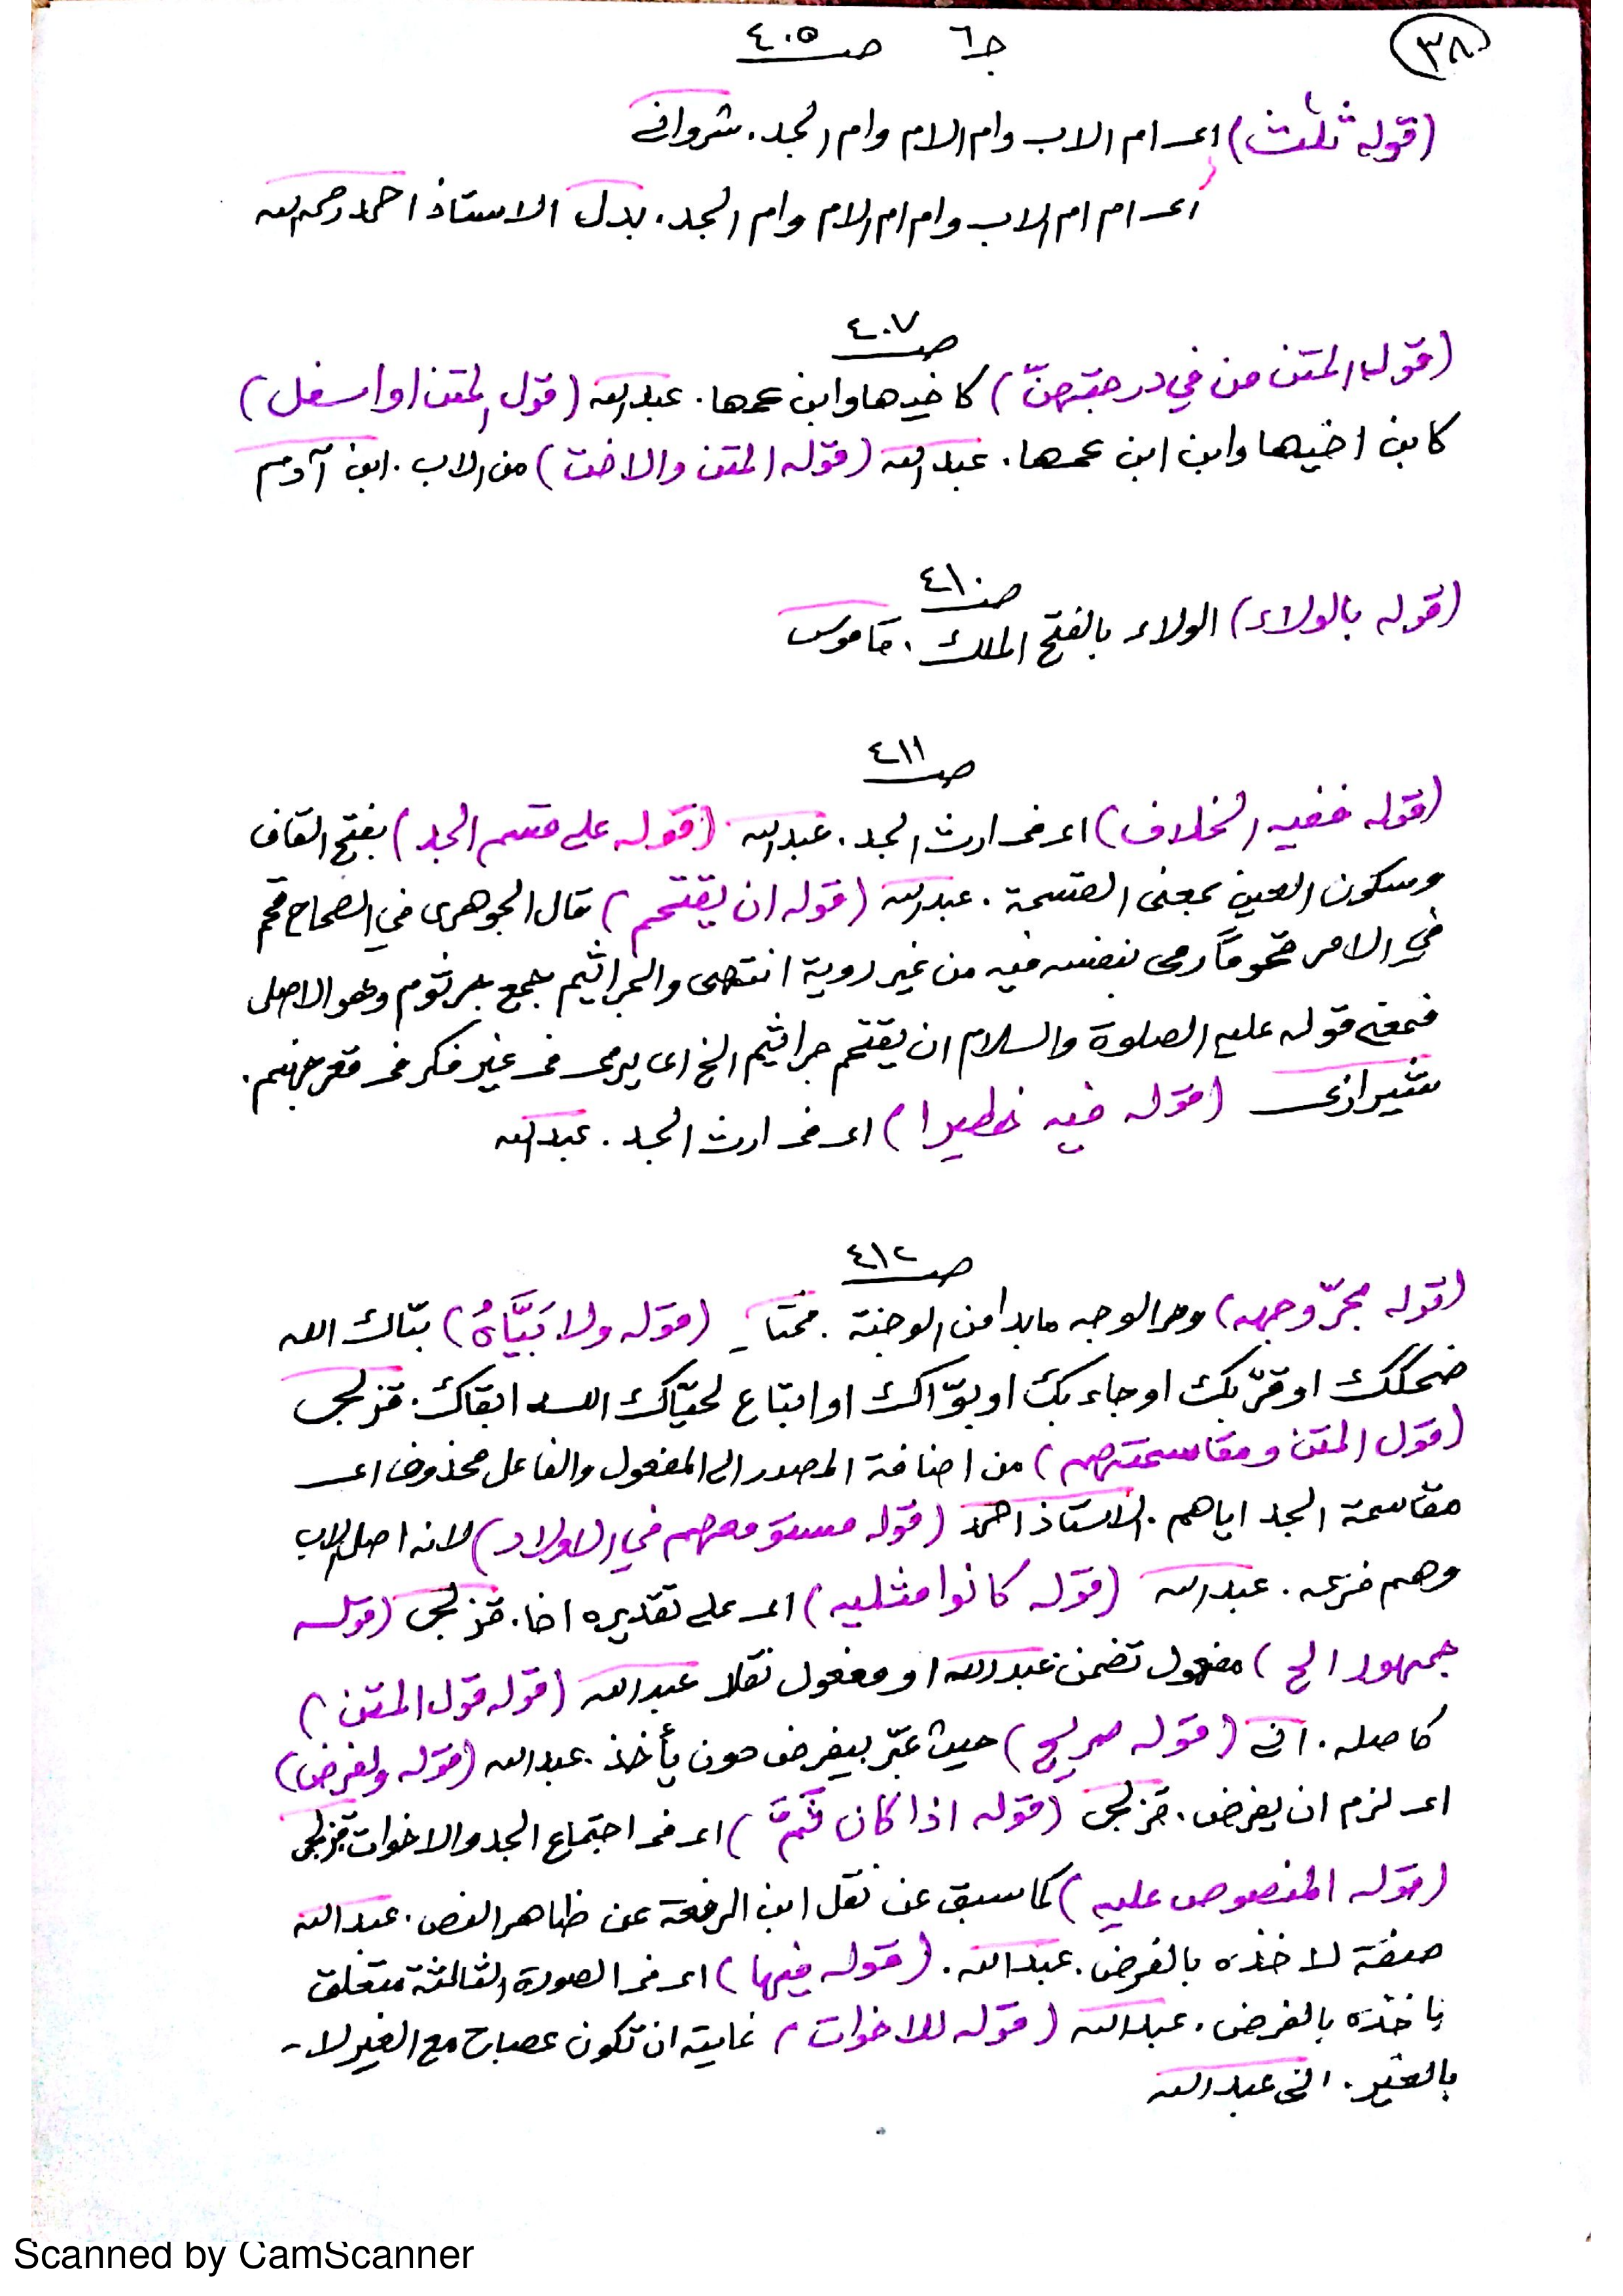 ٣٨
جـ٦ صـ ٤٠٥
(قوله ثلث) اى ام الاب وام الام وام الجد. شروانى
اى ام ام الاب وام ام الام وام الجد. بدل الاستاذ احمد رحمه الله
صـ ٤٠٧
(قول المتن من في درجتهنّ) كاخيها وابن عمها. عبدالله (قول المتن او اسفل)
كابن اخيها وابن ابن عمها. عبدالله (قوله المتن والاخت) من الاب. ابن آدم
صـ ٤١٠
(قوله بالولاء) الولاء بالفتح الملك. قاموس
صـ ٤١١
(قوله ففيه الخلاف) اى فى ارث الجد. عبدالله (قوله على قسم الجد) بفتح القاف
وسكون العين بمعنى القسمة. عبدالله (قوله ان يقتحم) قال الجوهرى في الصحاح قحم
في الامر قحوماً رمى بنفسه فيه من غير روية انتهى والجراثيم جمع جرثوم وهو الاصل
فمعنى قوله عليه الصلوة والسلام ان يقتحم جراثيم الخ اى يرمى فى غير فكر فى قعر جهنم.
(قوله فيه خطيرا) اى فى ارث الجد. عبدالله
صـ ٤١٢
(قوله بحرّ وجهه) وحر الوجه ما بدا من الوجنة. مختار (قوله ولا بَيَّاهُ) بيّاك الله
ضحكك او قرّبك او جاء بك او بوّاك او اتباع لحيّاك الله ابقاك. قزلجى
(قول المتن ومقاسمتهم) من اضافة المصدر الى المفعول والفاعل محذوف اى
مقاسمة الجد اياهم. الاستاذ احمد (قوله مستو معهم في الاولاد) لانه اصل الاب
وهم فرعه. عبدالله (قوله كانوا مثليه) اى على تقديره اخا. قزلجى (قوله
جمهور الخ) مفعول تضمن عبدالله او مفعول نقلا عبدالله (قوله قول المتن)
كاصله. انى (قوله صريح) حيث عبّر بيفرض دون يأخذ. عبدالله (قوله ولفرض)
اى لزم ان يفرض. قزلجى (قوله اذا كان ثَمَّ) اى فى اجتماع الجد والاخوات قزلجى
(قوله المنصوص عليه) كما سبق عن نقل ابن الرفعة عن ظاهر النص. عبدالله
صفة لاخذه بالفرض. عبدالله. (قوله فيها) اى فى الصورة الثالثة متعلق
باخذه بالفرض. عبدالله (قوله للاخوات) غايته ان تكون عصبات مع الغير لا -
بالغير. انى عبدالله
Scanned by CamScanner